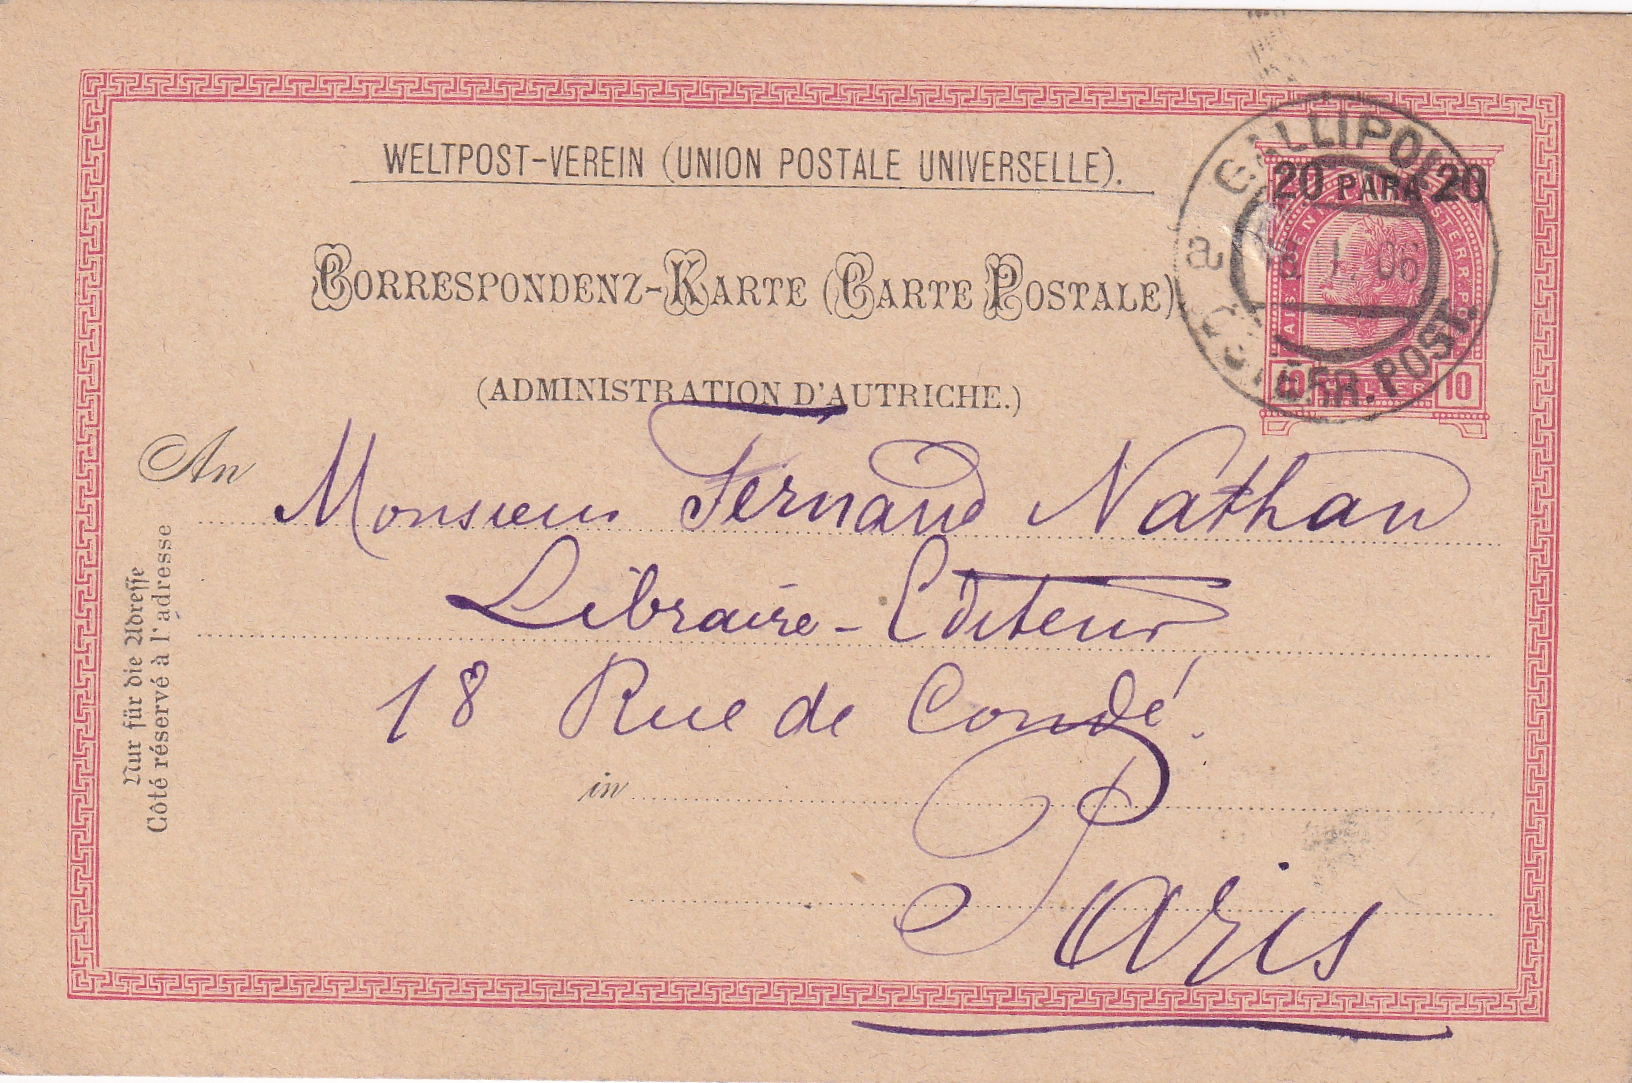 WELTPOST-VEREIN (UNION POSTALE UNIVERSELLE).
CORRESPONDENZ-KARTE (CARTE POSTALE)
(ADMINISTRATION D'AUTRICHE.)
GALLIPOLI
20 PARA 20
a
06
ÖSTERR. POST.
10 HELLER 10
An Monsieur Fernand Nathan
Libraire-Editeur
18 Rue de Condé.
in
Paris
Nur für die Adresse
Côté réservé à l'adresse